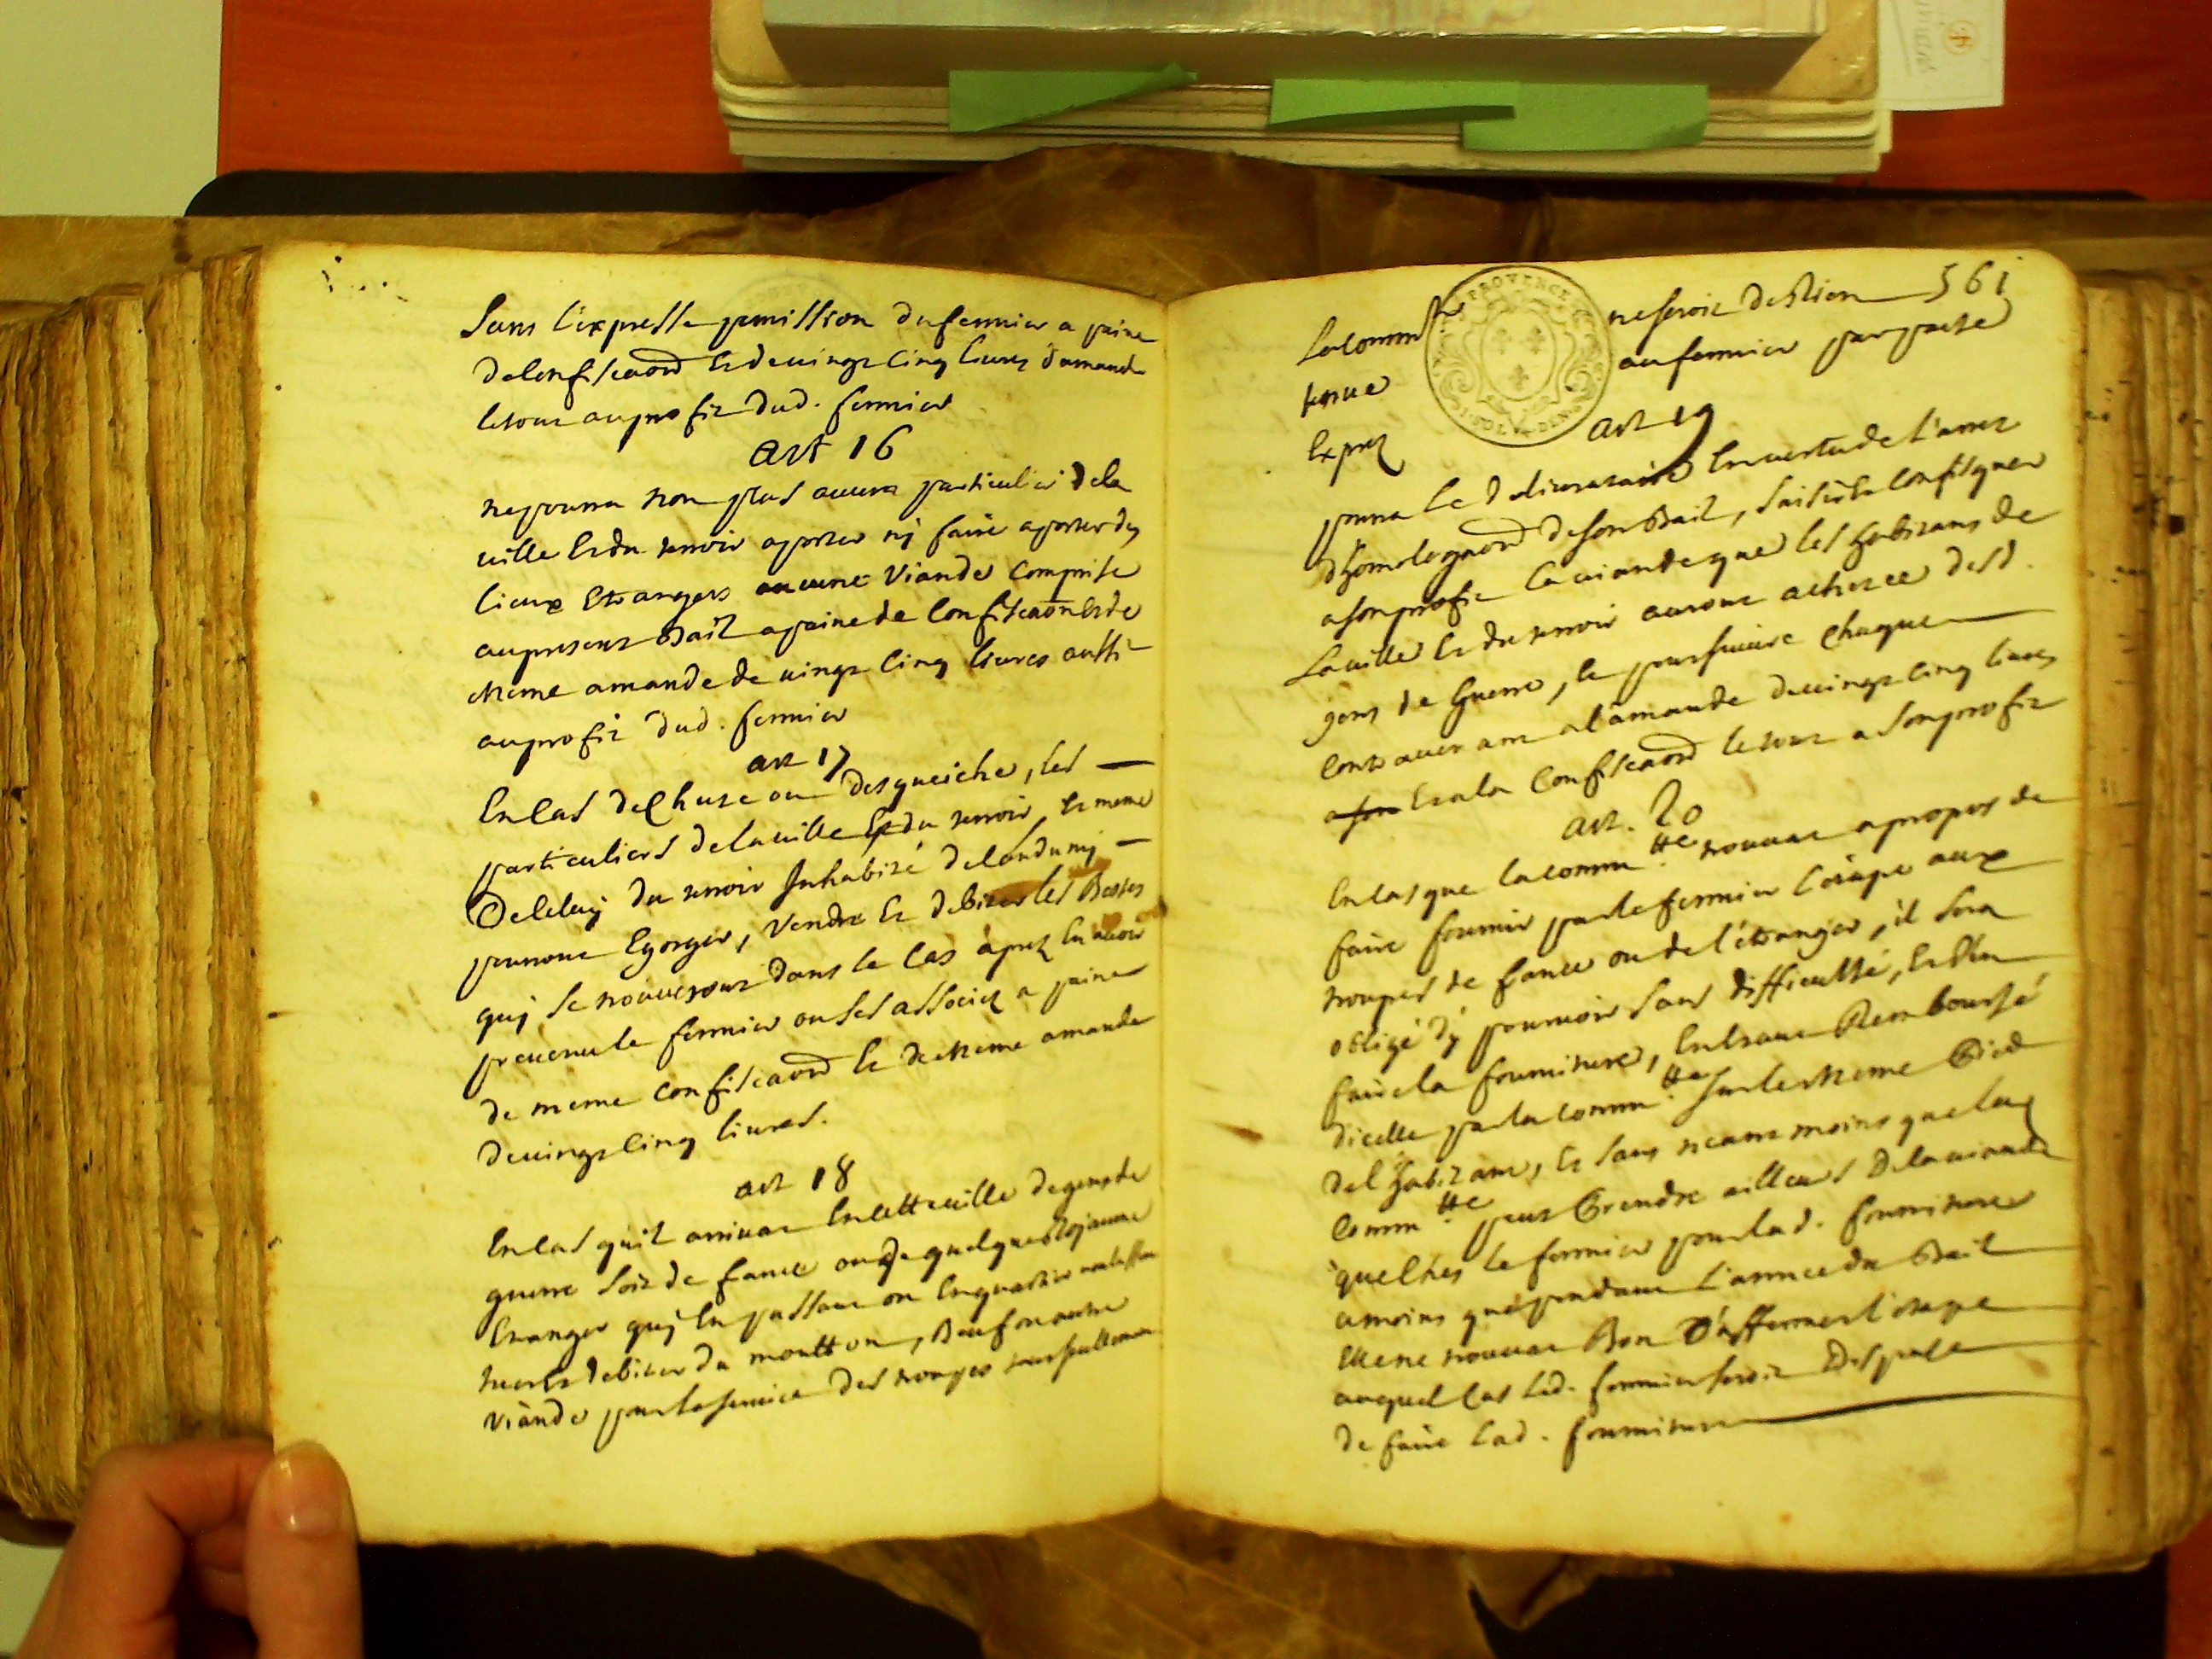 Sans l'expresse permission du fermier a paine
de confiscaõn Et de vingt cinq livres d'amande
le tout au profit dud. fermier
art 16
ne pourra non plus aucun particulier de la
ville Et du terroir aporter nj faire aporter des
lieux Etrangers aucune viande comprise
au present Bail a paine de confiscaõn Et de
meme amande de vingt cinq livres aussi
au profit dud. fermier
art 17
En cas de chute ou des queiche, les
particuliers de la ville Et du terroir, Et meme
De celuy du terroir Inhabité de
pourront Egorger, vendre Et debiter les Bestes
quj se trouveront dans le cas aprez En avoir
prevenu le fermier ou ses associez a paine
de meme confiscaõn Et de meme amande
de vingt cinq livres.
art 18
En cas quil arrivat En cette ville de gens de
guerre soit de france ou de quelque Royaume
Etranger quj En passant ou En quartier
debiter du moutton, Beuf ou autre
viande pour le service des troupes tant seullement
la commtté ne seroit de Rien 561
tenue au fermier par pacte
Exprez
art 19
pourra le delivrataire En vertu de l'arret
d'homologaõn de son Bail, saisir Et confisquer
a son profit la viande que les habitans de
la ville Et du terroir auront acheptée desd.
gens de guerre, Et poursuivre chaque
contrevenant a l'amande de vingt cinq livres
a son Et a la confiscaõn le tout a son profit
art. 20
En cas que la commtté trouvat a propos de
faire fournir par le fermier l'étape aux
troupes de france ou de l'étranger, il sera
obligé d'y pourvoir sans difficulté, Et d'en
faire la fourniture, En Etant Remboursé
d'icelle par la commtté sur le meme Pied
de l'habitant, Et sans neantmoins que lad.
commtté peut Prendre ailleurs de la viande
que chés le fermier pour lad. fourniture
a moins que pendant l'année du Bail
Elle ne trouvat Bon D'affermer l'étape
auquel cas led. fermier seroit Dispensé
de faire lad. fourniture
PROVENCE